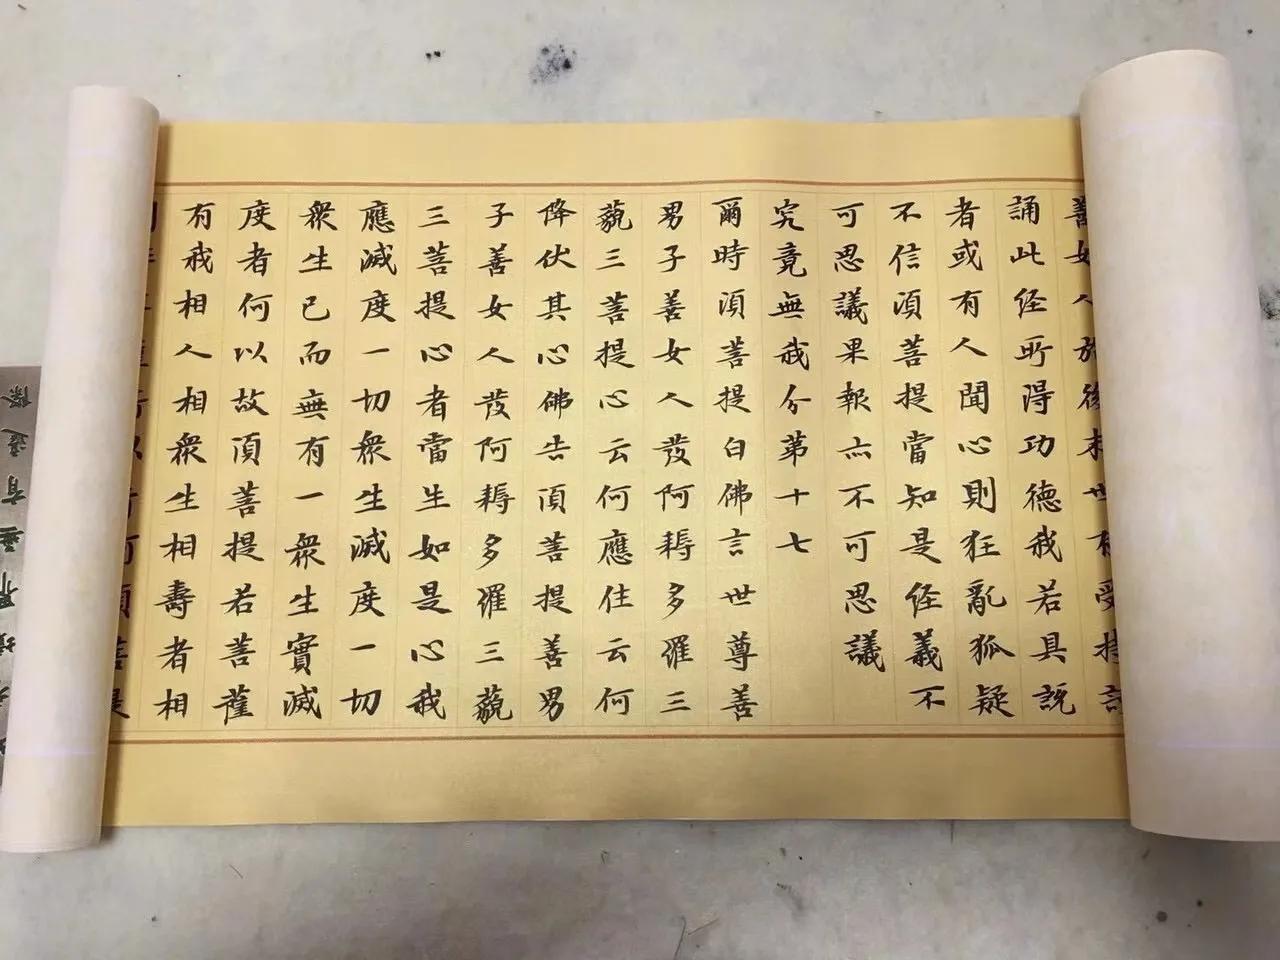 善女人於後末世有受持讀
誦此經所得功德我若具說
者或有人聞心則狂亂狐疑
不信須菩提當知是經義不
可思議果報亦不可思議
究竟無我分第十七
爾時須菩提白佛言世尊善
男子善女人發阿耨多羅三
藐三菩提心云何應住云何
降伏其心佛告須菩提善男
子善女人發阿耨多羅三藐
三菩提心者當生如是心我
應滅度一切眾生滅度一切
眾生已而無有一眾生實滅
度者何以故須菩提若菩薩
有我相人相眾生相壽者相